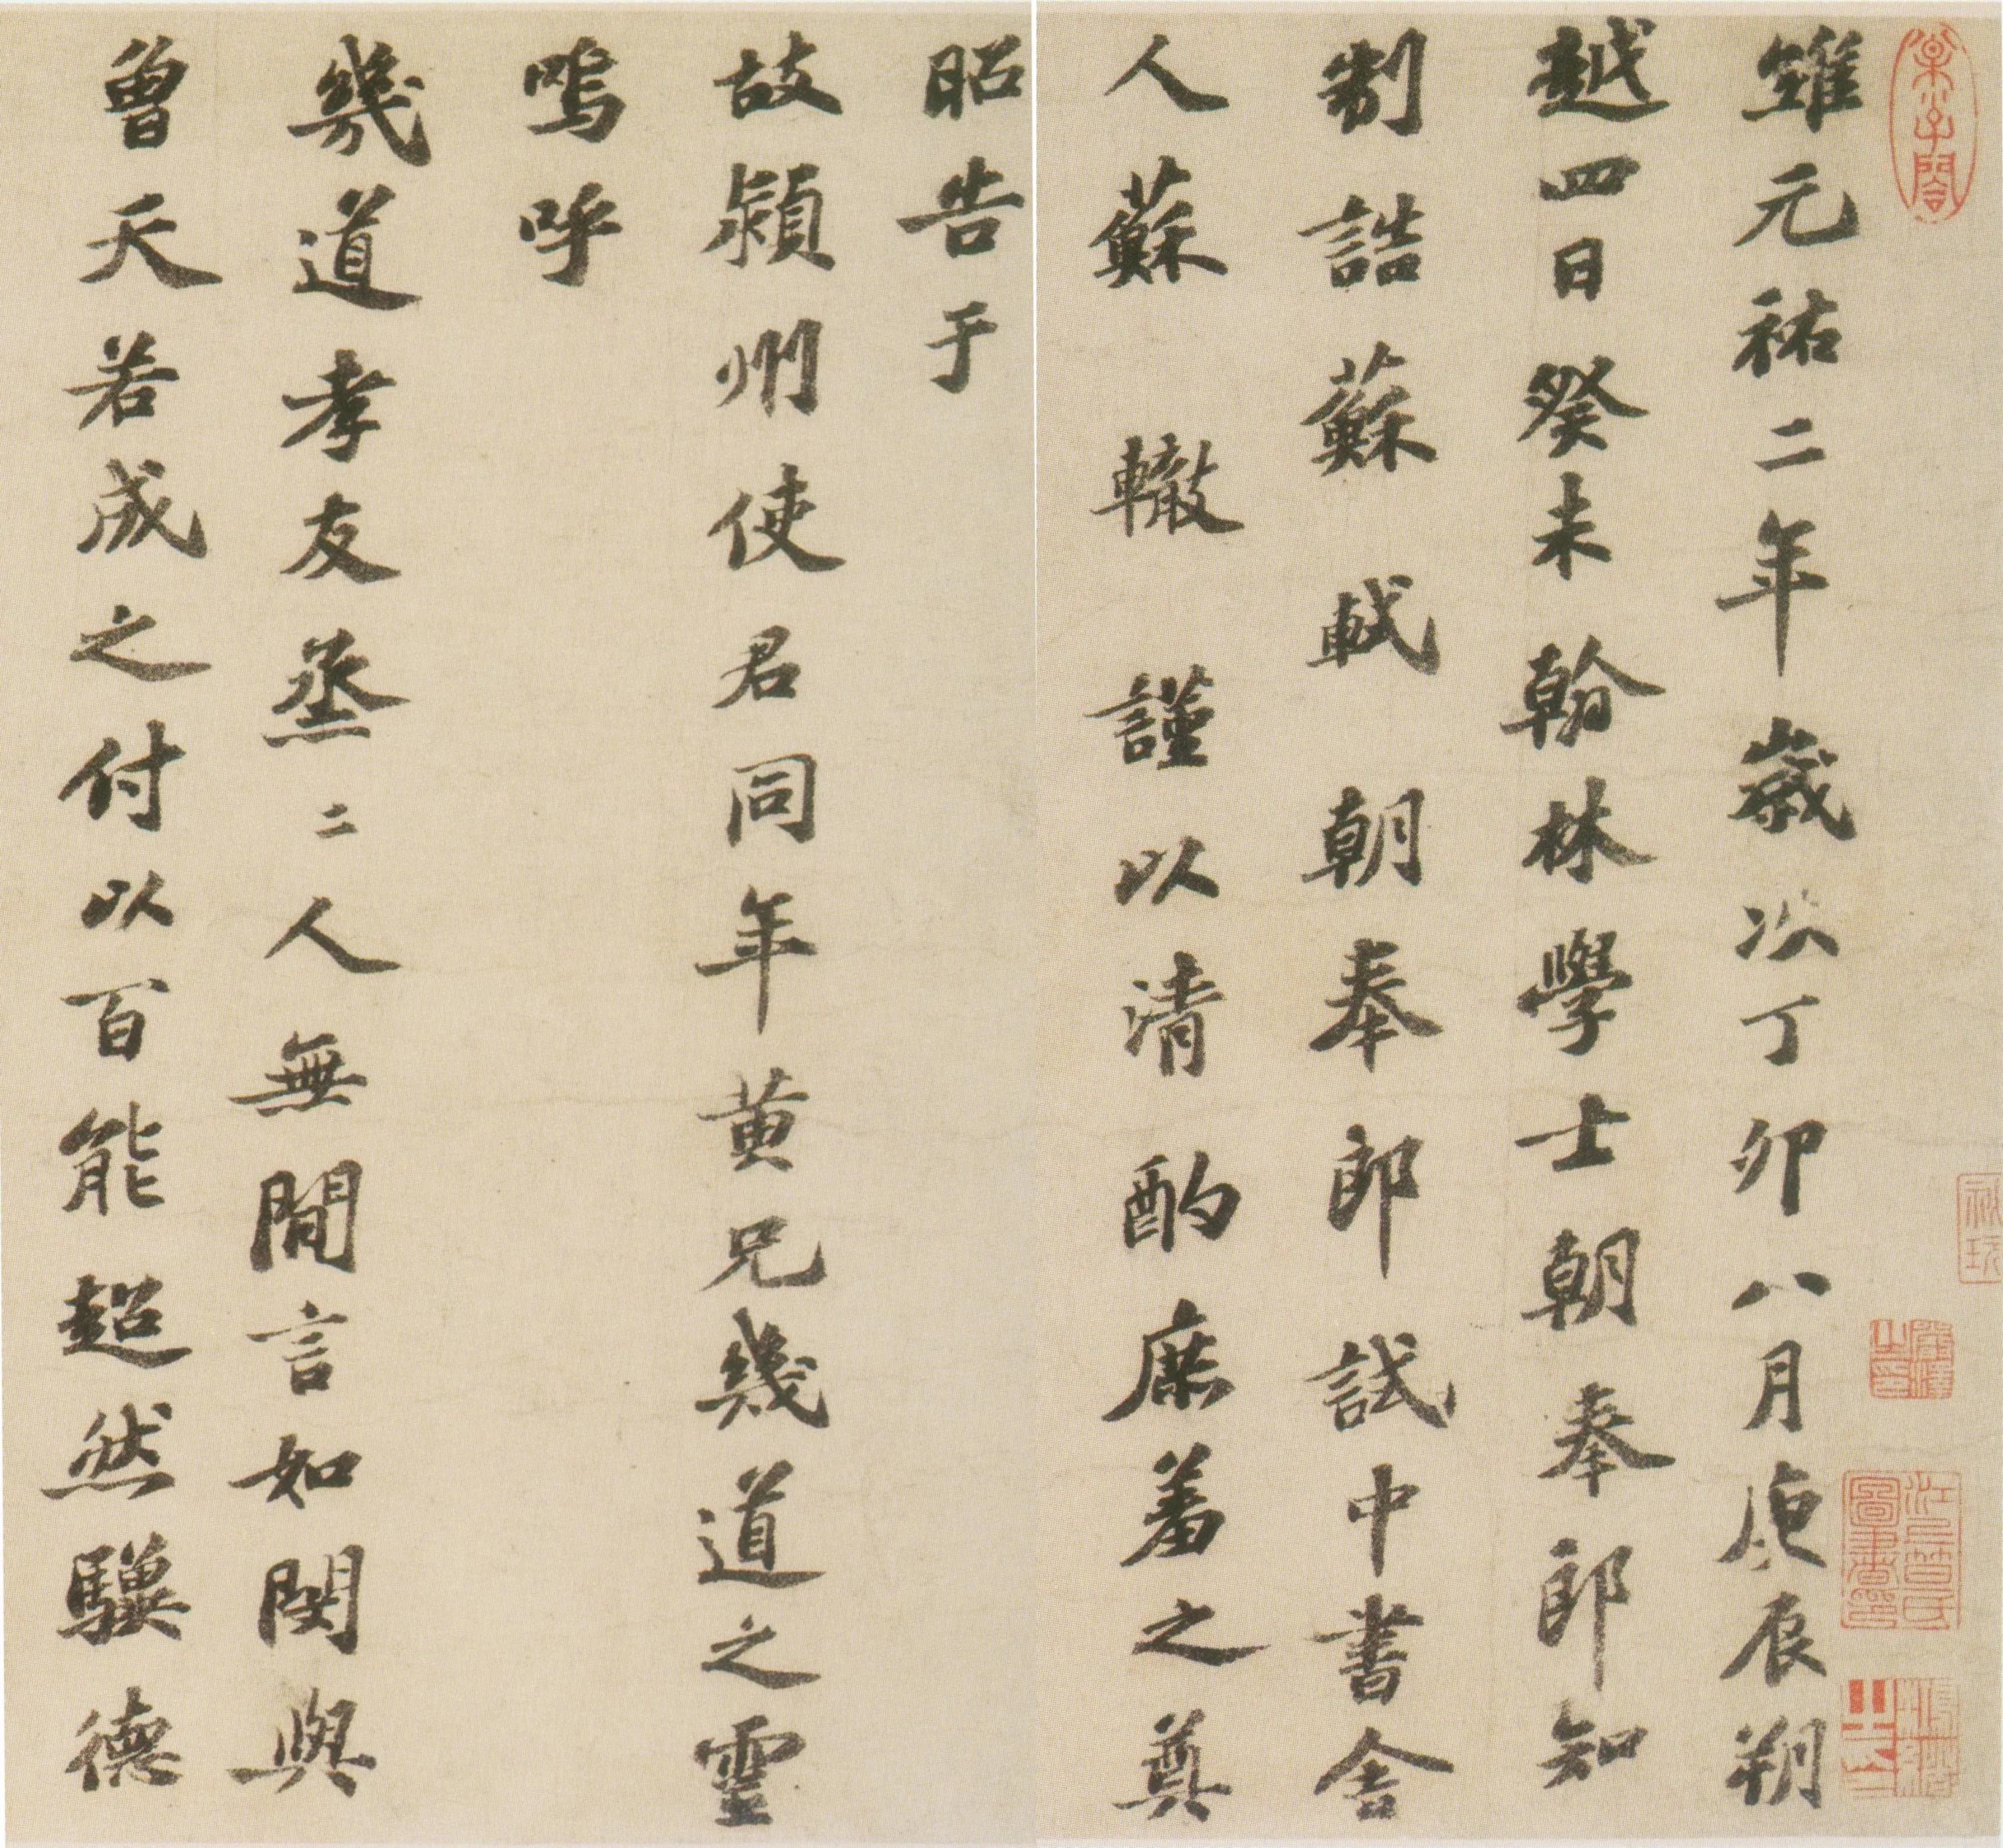 維元祐二年歲次丁卯八月庚辰朔
越四日癸未翰林學士朝奉郎知
制誥蘇軾朝奉郎試中書舍
人蘇轍謹以清酌庶羞之奠
昭告于
故潁州使君同年黄兄幾道之靈
嗚呼
幾道孝友烝二人無間言如閔與
曾天若成之付以百能超然驥德
江上笪氏圖書印